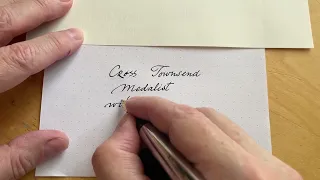 Cross Townsend
Medalist